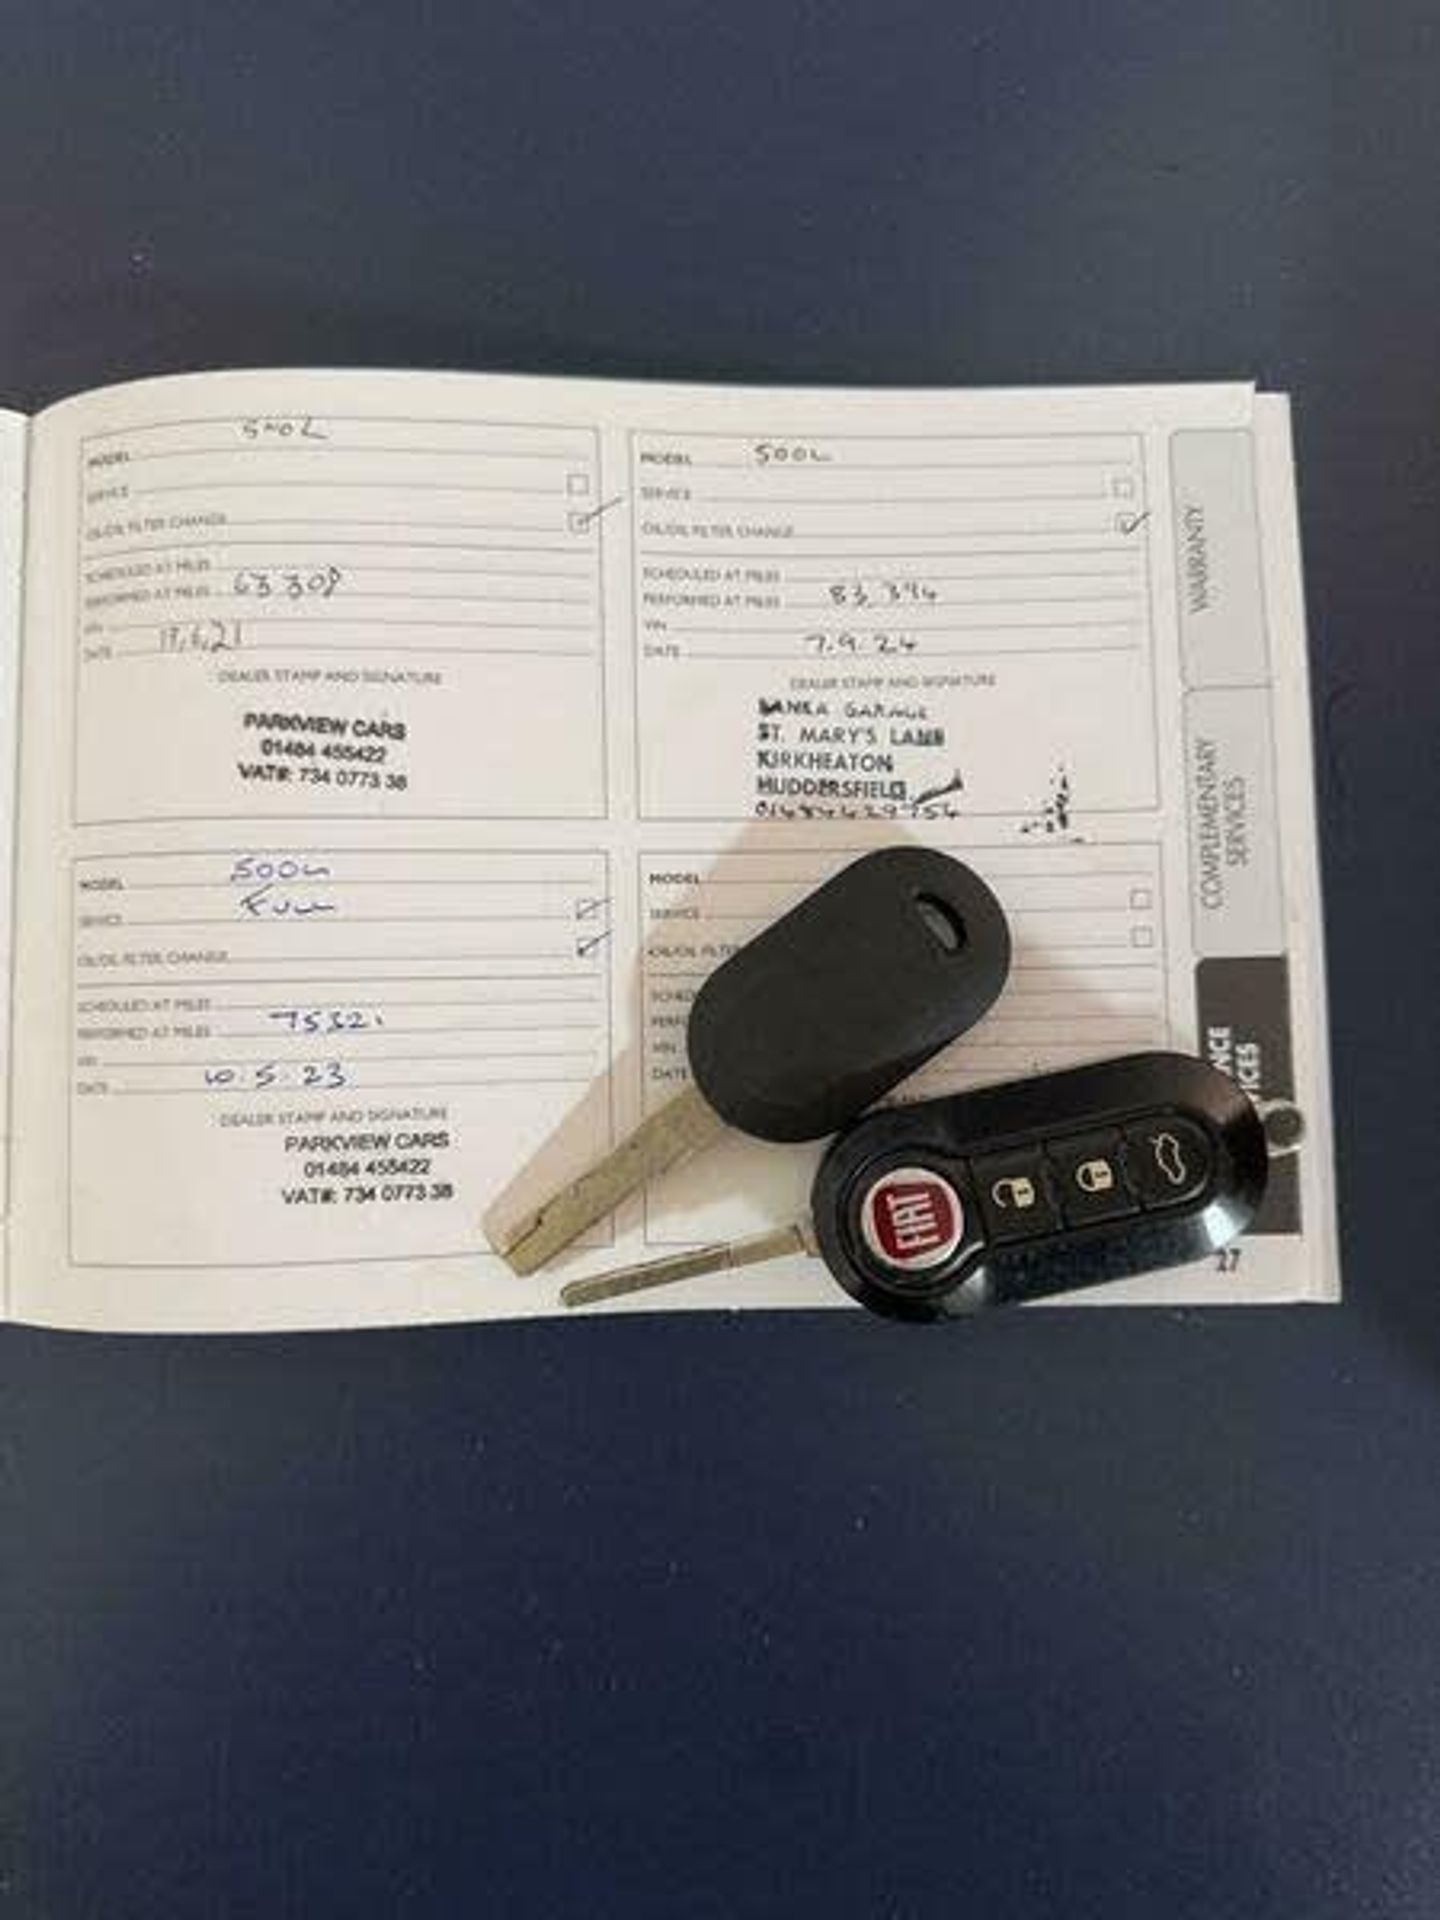 MODEL 500L
SERVICE
OIL/OIL FILTER CHANGE
SCHEDULED AT MILES
PERFORMED AT MILES 63 308
VIN
DATE
DEALER STAMP AND SIGNATURE
PARKVIEW CARS
01484 455422
VAT#: 734 0773 38
MODEL 500L
SERVICE
OIL/OIL FILTER CHANGE
SCHEDULED AT MILES
PERFORMED AT MILES 83,394
VIN
DATE 7.9.24
DEALER STAMP AND SIGNATURE
GARAGE
ST. MARY'S LANE
KIRKHEATON
HUDDERSFIELD
01484429754
MODEL 500L
SERVICE FULL
OIL/OIL FILTER CHANGE
SCHEDULED AT MILES
PERFORMED AT MILES 75321
VIN
DATE 10.5.23
DEALER STAMP AND SIGNATURE
PARKVIEW CARS
01484 455422
VAT#: 734 0773 38
MODEL
SERVICE
OIL/OIL FILTE
SCHED
PERFO
VIN
DATE
WARRANTY
COMPLEMENTARY
SERVICES
NCE
ICES
27
FIAT